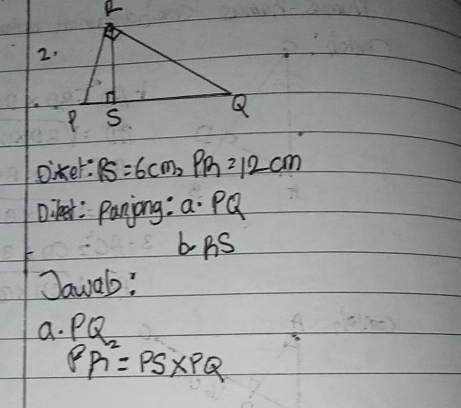 R
2.
P S Q
Diket: PS = 6cm, PR = 12 cm
Diket: Panjang: a. PQ
b RS
Jawab:
a. PQ
PR² = PS X PQ